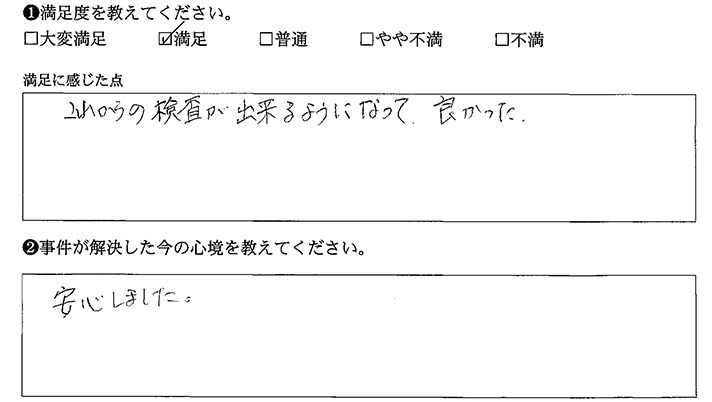 ❶満足度を教えてください。
□大変満足 ☑満足 □普通 □やや不満 □不満
満足に感じた点
これからの検査が出来るようになって、良かった.
❷事件が解決した今の心境を教えてください。
安心しました。